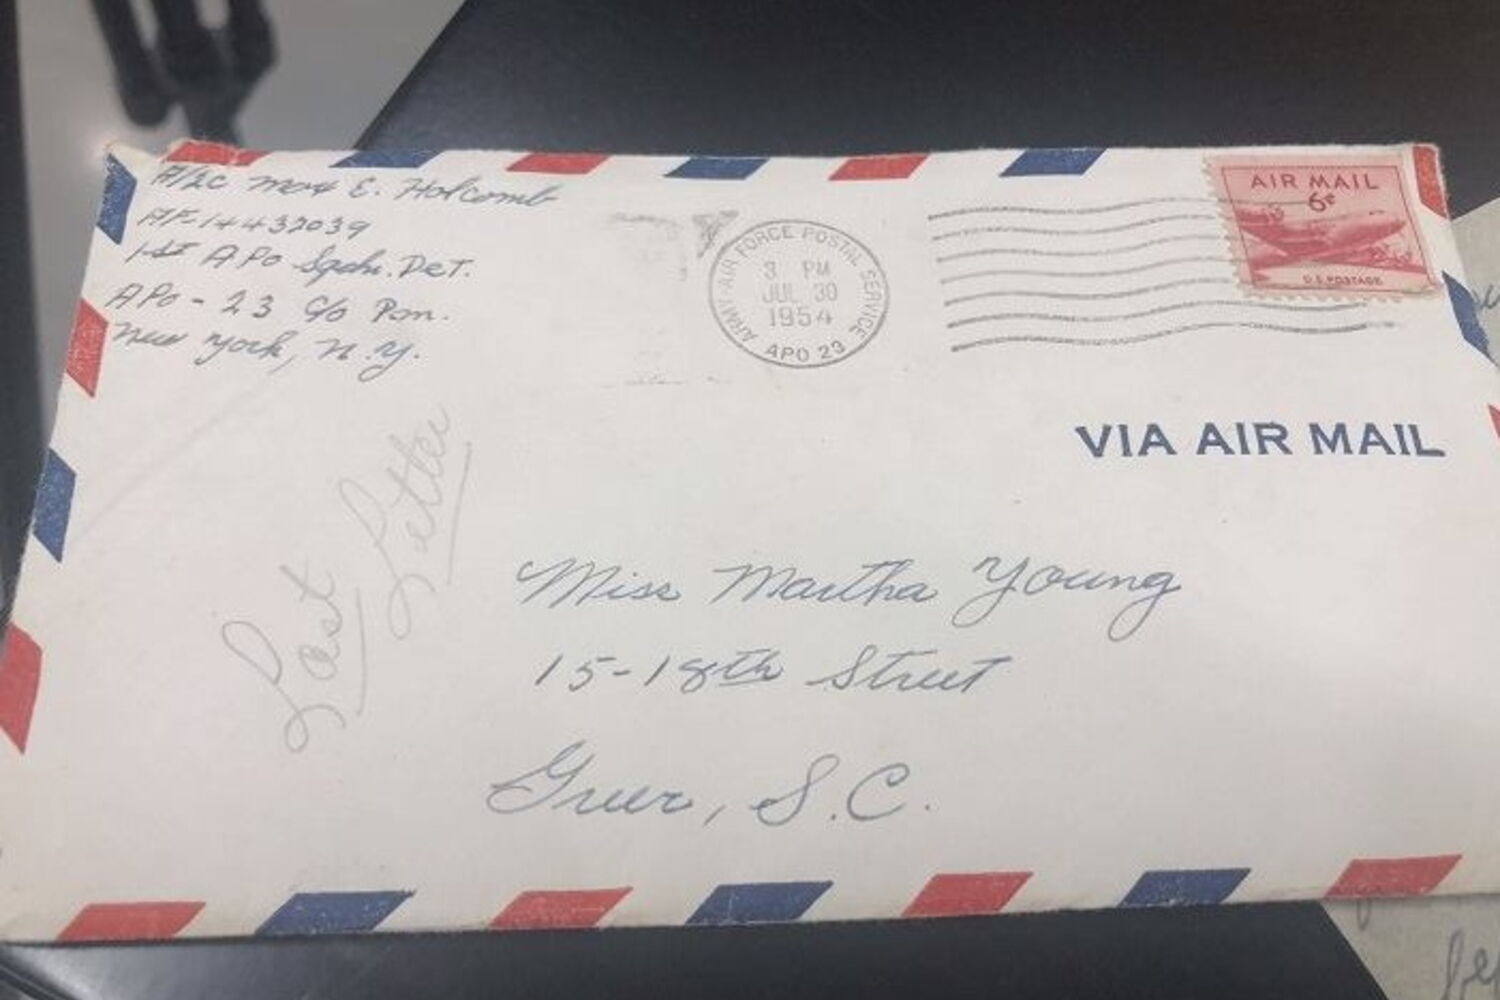 A/2c Max E. Holcomb
AF-14432039
1st APO Sqdn. Det.
APO-23 c/o Pm.
New York, N.Y.
ARMY-AIR FORCE POSTAL SERVICE
3 PM
JUL 30
1954
APO 23
AIR MAIL
6¢
U.S. POSTAGE
VIA AIR MAIL
Last Letter
Miss Martha Young
15-18th Street
Greer, S.C.